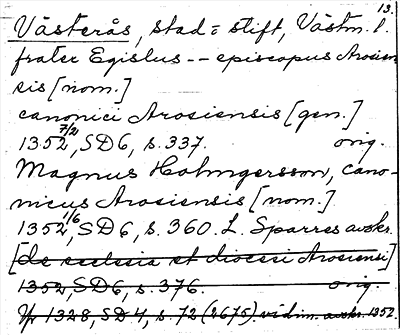 13.
Västerås, stad = stift, Västm. l.
frater Egislus -- episcopus Arosien
sis [nom.]
canonici Arosiensis [gen.]
1352 7/2, SD6, s. 337. orig.
Magnus Holmgersson, cano-
nicus Arosiensis [nom.]
1352 1/6, SD6, s. 360. L. Sparres avskr.
[de ecclesia et diocesi Arosiensi]
1352, SD6, s. 376. orig.
Up 1328, SD4, s. 72 (2675). vidim. avskr. 1352.